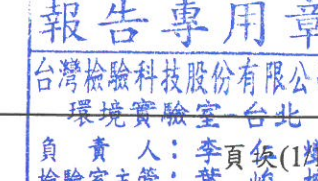 報告專用章
台灣檢驗科技股份有限公
環境實驗室-台北
負責人：李
頁次(1
檢驗室主管：葉